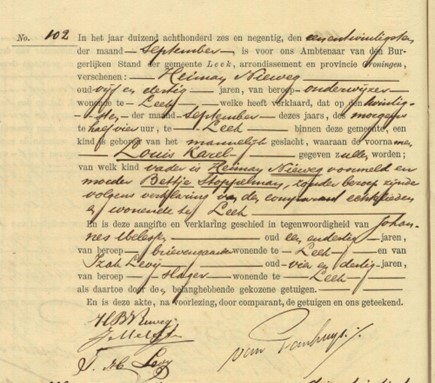 No. 102
In het jaar duizend achthonderd zes en negentig, den eenentwintigsten
der maand September is voor ons Ambtenaar van den Bur-
gerlijken Stand der gemeente Leek, arrondissement en provincie Groningen,
verschenen: Heiman Nieweg
oud vijf en dertig jaren, van beroep onderwijzer
wonende te Leek welke heeft verklaard, dat op den twintig-
sten der maand September dezes jaars, des morgens
te half vier uur, te Leek binnen deze gemeente, een
kind is geboren van het mannelijk geslacht, waaraan de voornamen
Louis Karel gegeven zullen worden;
van welk kind vader is Heiman Nieweg voormeld en
moeder Betje Stoppelman, zonder beroep zijnde
volgens verklaring van den comparant echtelieden
en wonende te Leek
En is deze aangifte en verklaring geschied in tegenwoordigheid van Johan-
nes oud en dertig jaren,
van beroep brievengaarder wonende te Leek en van
Izak Levij oud vier en dertig jaren,
van beroep slager wonende te Leek
als daartoe door de belanghebbende gekozene getuigen.
En is deze akte, na voorlezing, door comparant, de getuigen en ons geteekend.
H Nieweg
Levy
van Panhuys